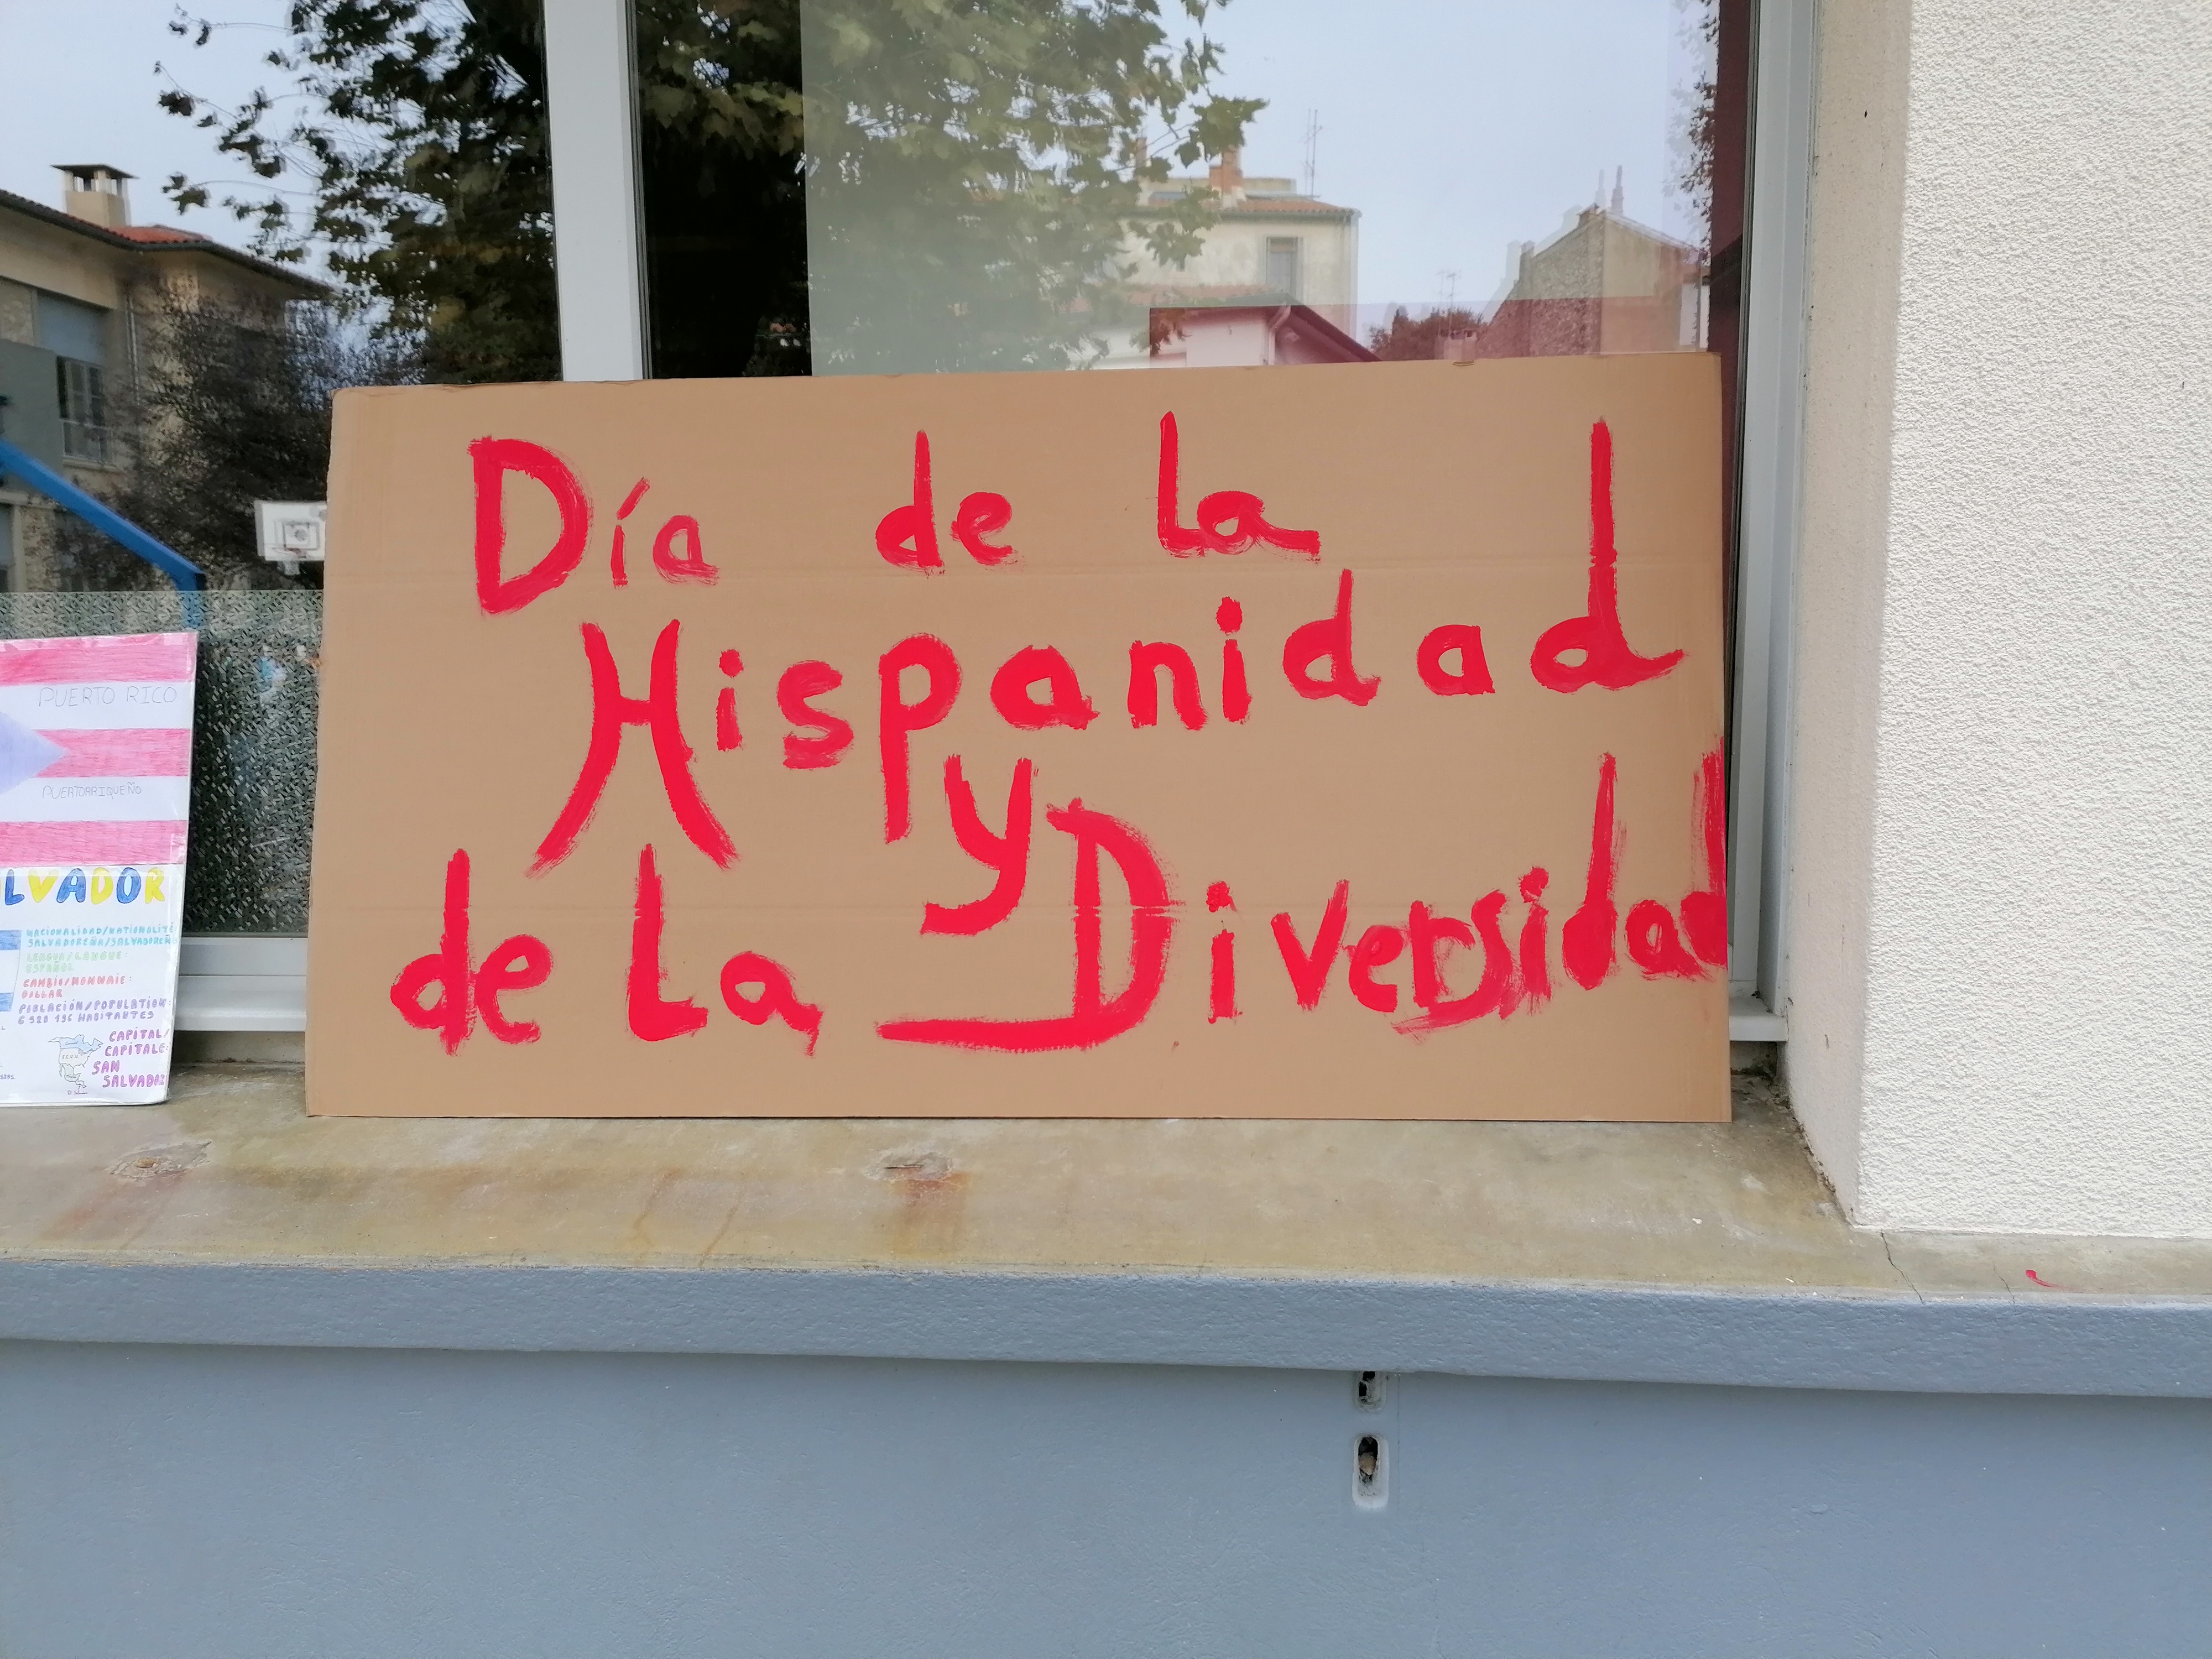 Día de la
Hispanidad
y
de la Diversidad
PUERTO RICO
PUERTORRIQUEÑO
LVADOR
NACIONALIDAD/NATIONALITÉ
SALVADOREÑA/SALVADOREÑ
LENGUA/LANGUE:
ESPAÑOL
CAMBIO/MONNAIE:
DOLLAR
POBLACIÓN/POPULATION:
HABITANTES
CAPITAL/
CAPITALE:
SAN
SALVADOR